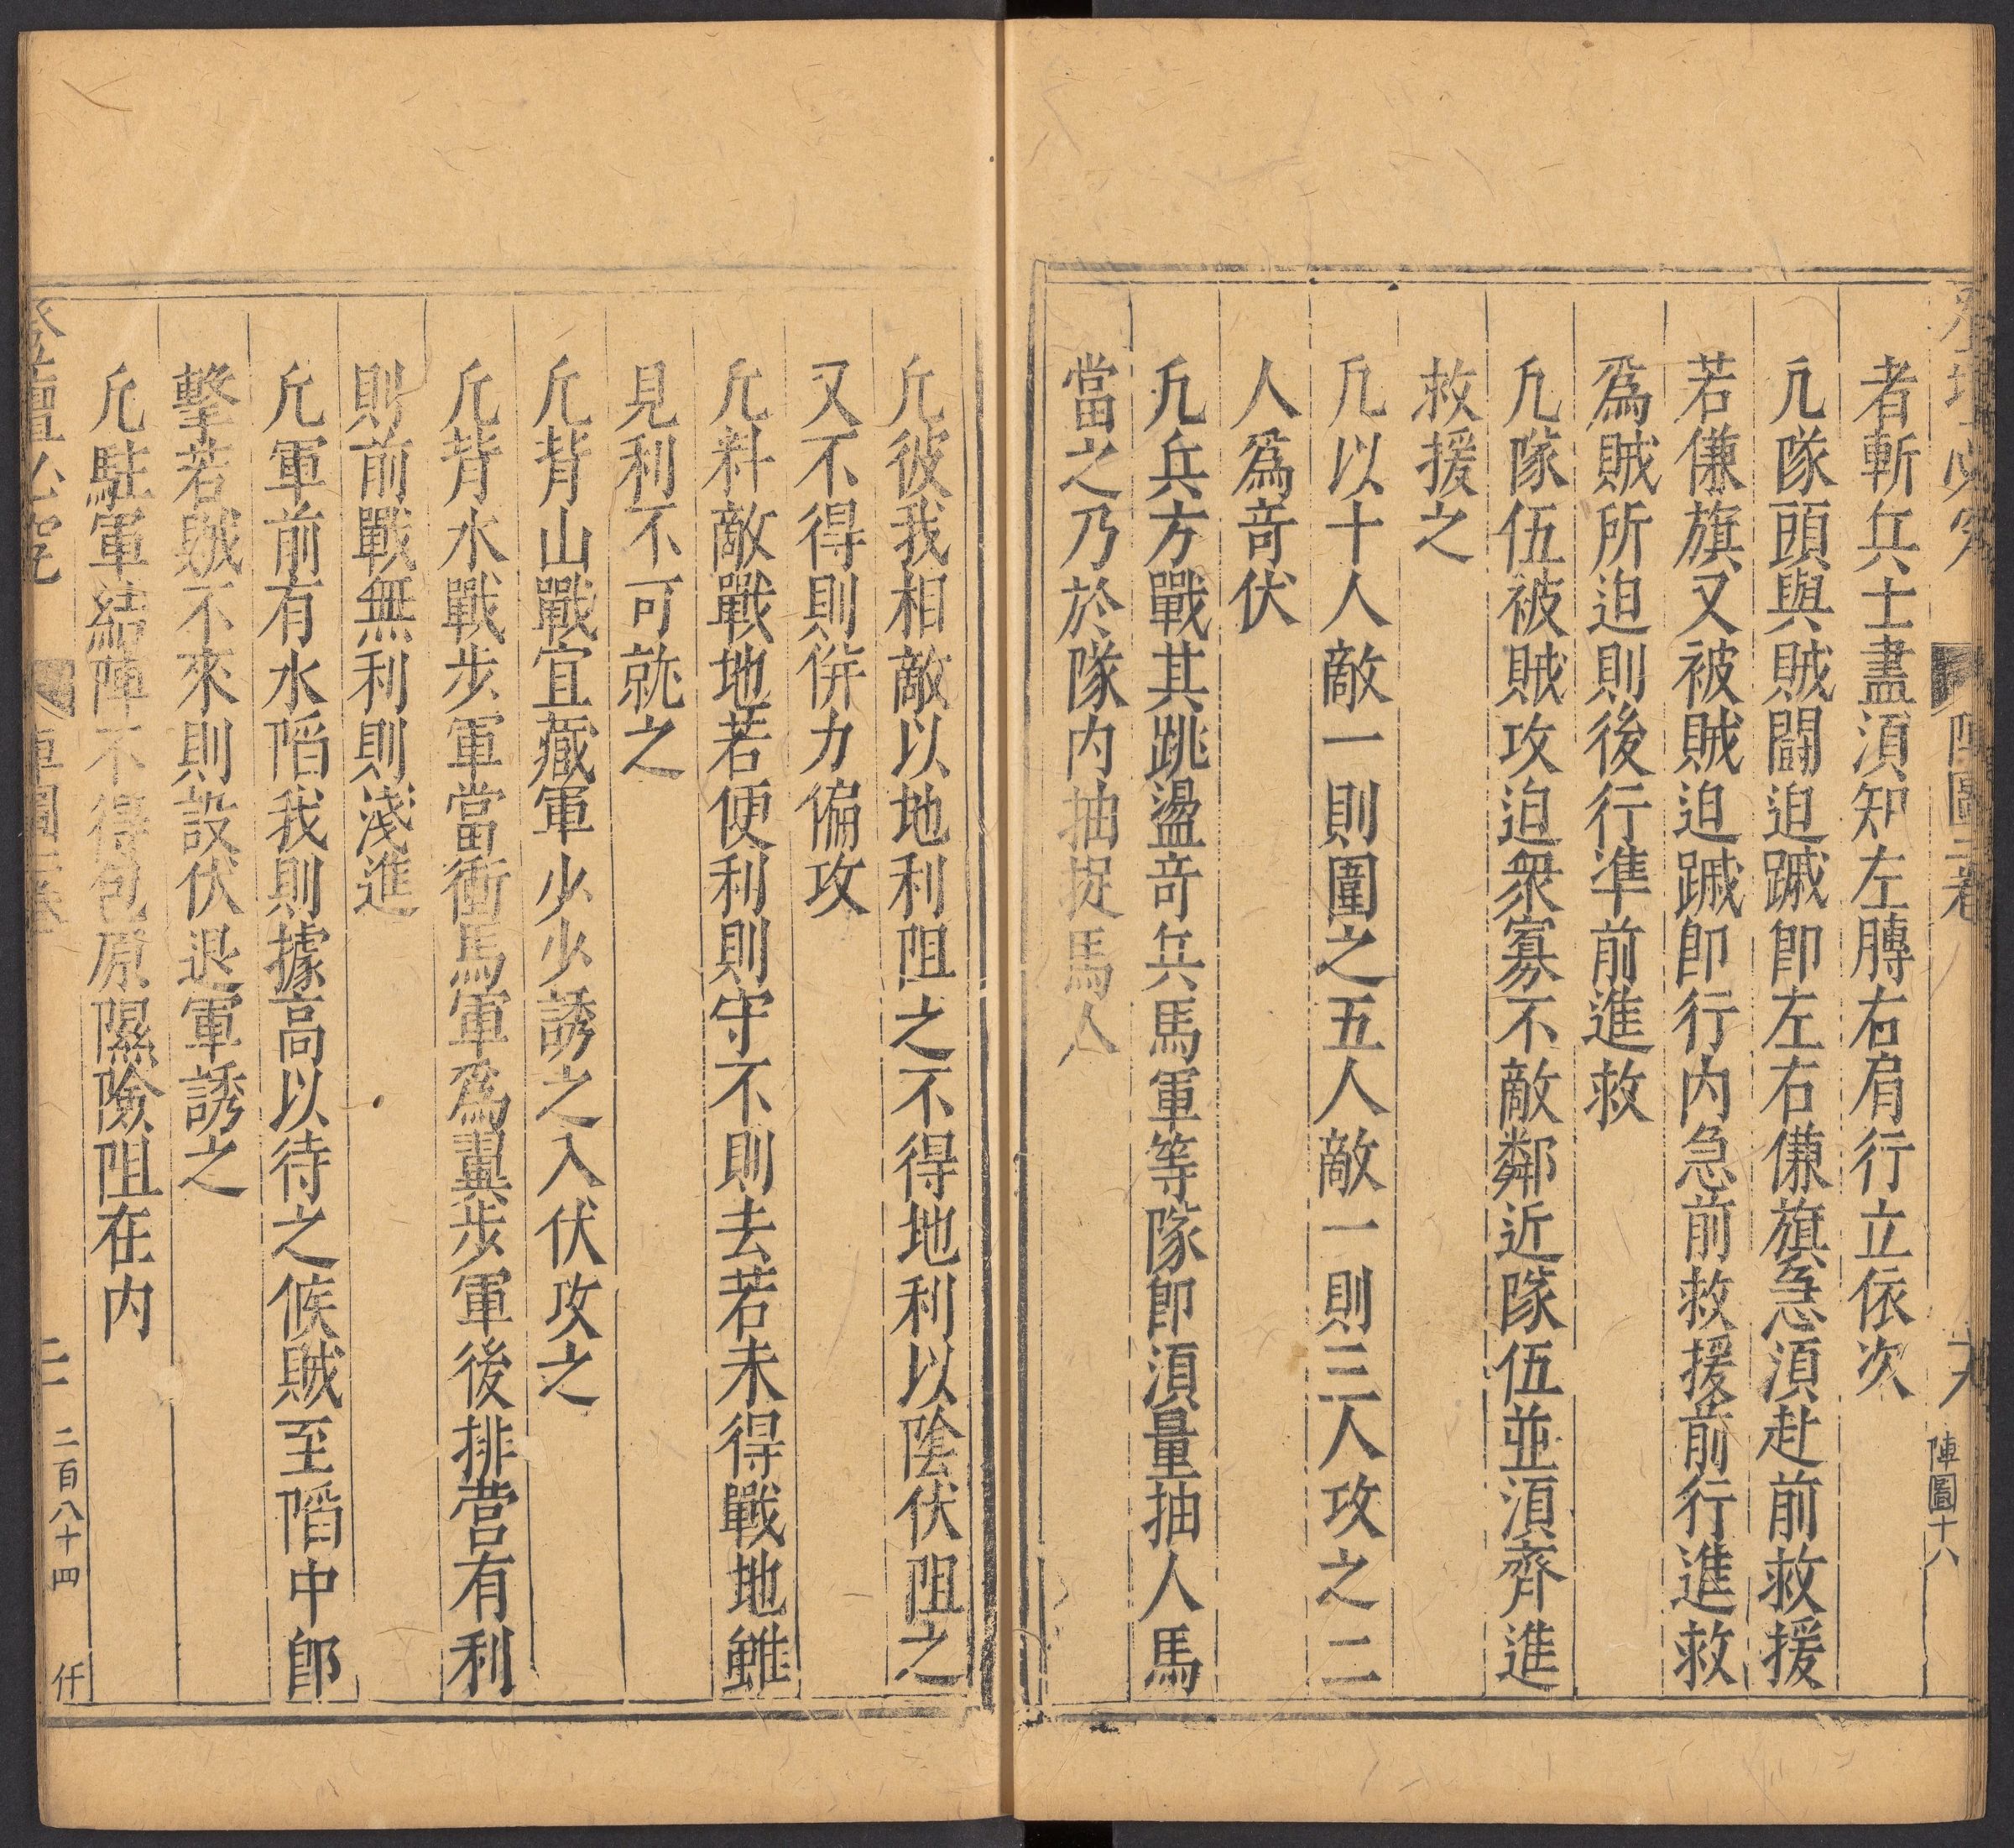 陣圖二卷
陣圖十八
者斬兵士盡湏知左膊右肩行立依次
凢隊頭與賊鬬迫蹴即左右傔旗急湏赴前救援
若傔旗又被賊迫蹴即行内急前救援前行進救
爲賊所迫則後行凖前進救
凢隊伍被賊攻迫衆寡不敵鄰近隊伍並湏齊進
救援之
凢以十人敵一則圍之五人敵一則三人攻之二
人爲竒伏
凢兵方戰其跳盪竒兵馬軍等隊即湏量抽人馬
當之乃於隊内抽捉馬人
凢彼我相敵以地利阻之不得地利以陰伏阻之
又不得則併力偏攻
凢料敵戰地若便利則守不則去若未得戰地雖
見利不可就之
凢背山戰宜藏軍少少誘之入伏攻之
凢背水戰步軍當衝馬軍爲翼步軍後排营有利
則前戰無利則淺進
凢軍前有水䧟我則據高以待之候賊至䧟中即
擊若賊不來則設伏退軍誘之
凢駐軍結陣不得包原隰險阻在内
二百八十四
仟